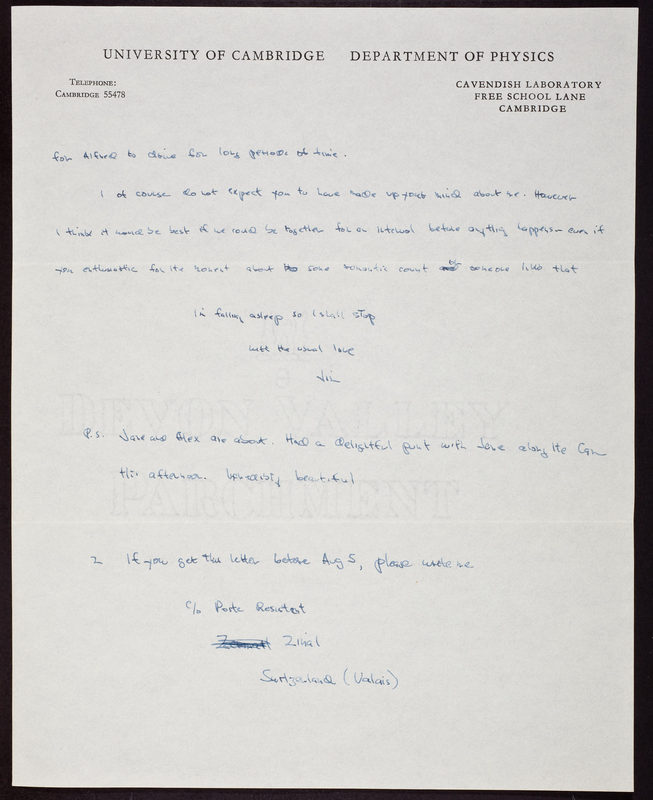 UNIVERSITY OF CAMBRIDGE DEPARTMENT OF PHYSICS
TELEPHONE:
CAMBRIDGE 55478
CAVENDISH LABORATORY
FREE SCHOOL LANE
CAMBRIDGE
for Alfred to drive for long periods of time.
I of course do not expect you to have made up your mind about me. However
I think it would be best if we could be together for an interval before anything happens even if
you enthusiastic for the moment about some romantic count or someone like that
I'm falling asleep so I shall stop
with the usual love
Jim
P.S. Jane and Alex are about. Had a delightful punt with Jane along the Cam
this afternoon. beautiful
2 If you get this letter before Aug 5, please write me
c/o Poste Restant
Zermatt Zinal
Switzerland (Valais)
DEVON VALLEY
PARCHMENT